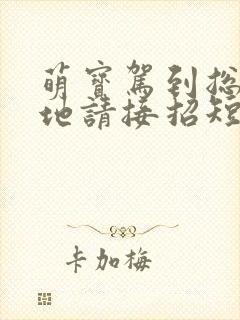 萌寶駕到总
地請接招短
卡加梅